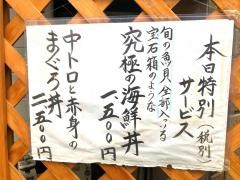 本日特別(税別
サービス
旬の魚貝全部入ってる
宝石箱のような
究極の海鮮丼
一、五〇〇円
中トロと赤身の
まぐろ丼
二、五〇〇円